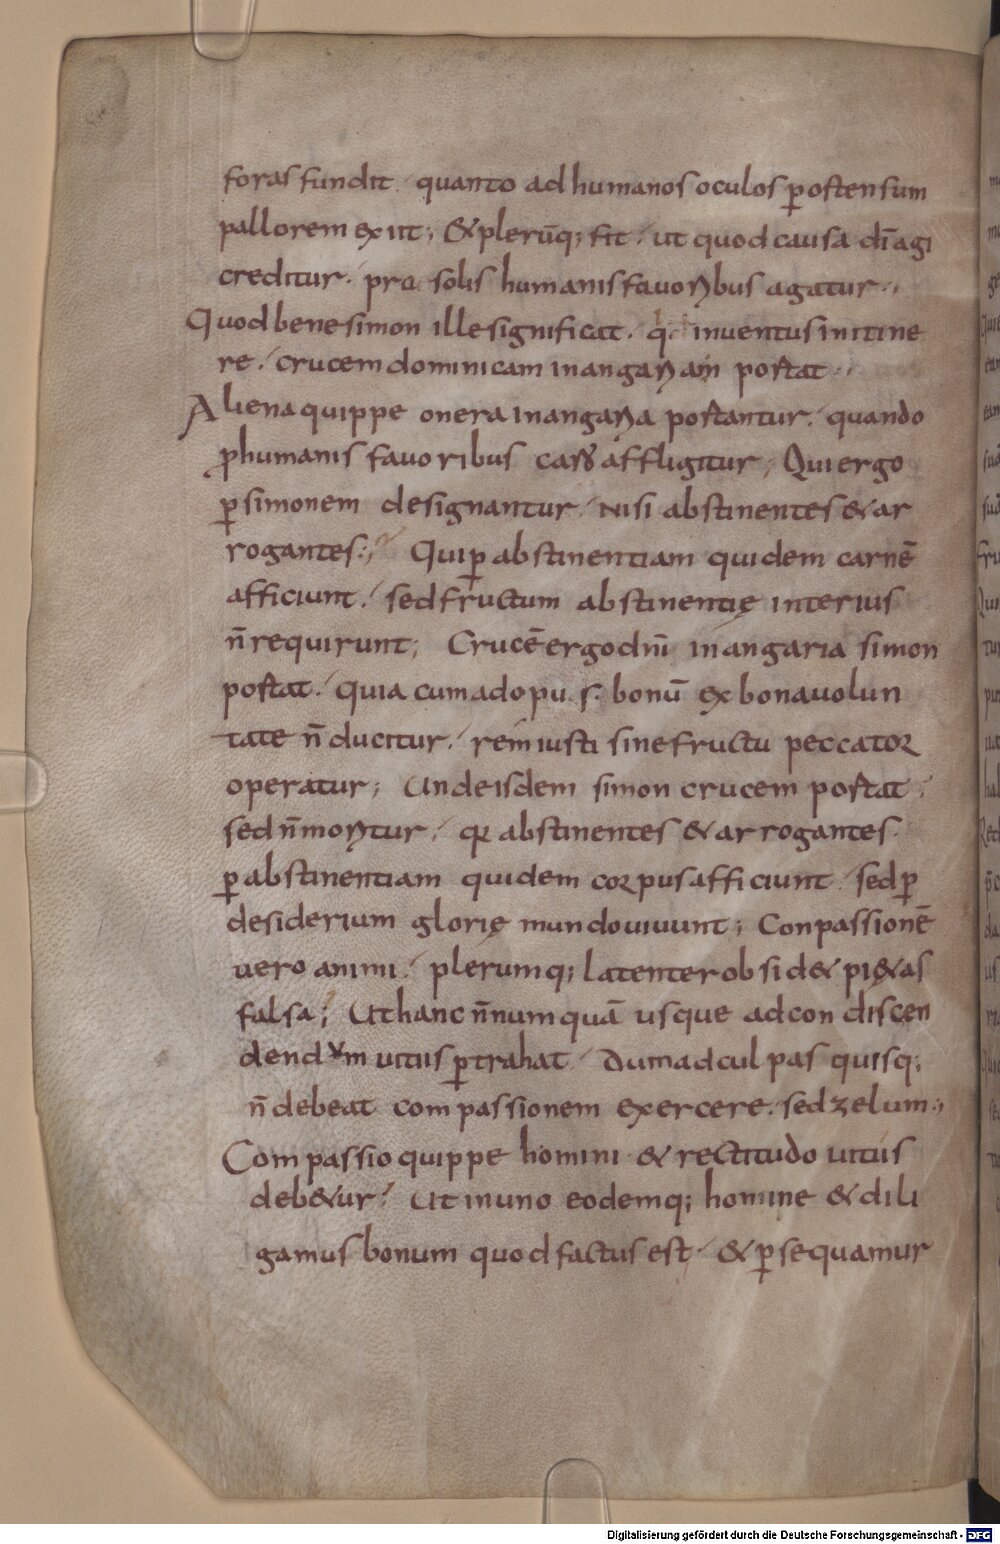 foras fundit. quanto ad humanos oculos ꝑ ostensum
pallorem exiit; & plerūq; fit. ut quod causa dī agi
creditur. pro solis humanis fauoribus agatur.,
Quod bene simon ille significat. q̄ inuentus in itine
re. crucem dominicam in angariam portat..
Aliena quippe onera in angaria portantur. quando
ꝓ humanis fauoribus caro affligitur, Qui ergo
ꝑ simonem designantur. Nisi abstinentes & ar
rogantes:, Qui ꝑ abstinentiam quidem carnē
afficiunt. sed fructum abstinentię interius
n̄ requirunt; Crucē ergo dn̄i in angaria simon
portat. quia cum ad opus bonū ex bona uolun
tate n̄ ducitur. rem iusti sine fructu peccator
operatur; Unde isdem simon crucem portat.
sed n̄ moritur. qr abstinentes & arrogantes.
ꝑ abstinentiam quidem corpus afficiunt. sed ꝑ
desiderium glorię mundo uiuunt; Conpassionē
uero animi. plerumq; latenter obsid& pi&as
falsa; Ut hanc n̄numquā usque ad condiscen
dendum uitiis ꝑtrahat. Dum ad culpas quisq;
n̄ debeat compassionem exercere. sed zelum.,
Compassio quippe homini & rectitudo uitiis
deb&ur. Ut in uno eodemq; homine & dili
gamus bonum quod factus est. & ꝑsequamur
Digitalisierung gefördert durch die Deutsche Forschungsgemeinschaft - DFG